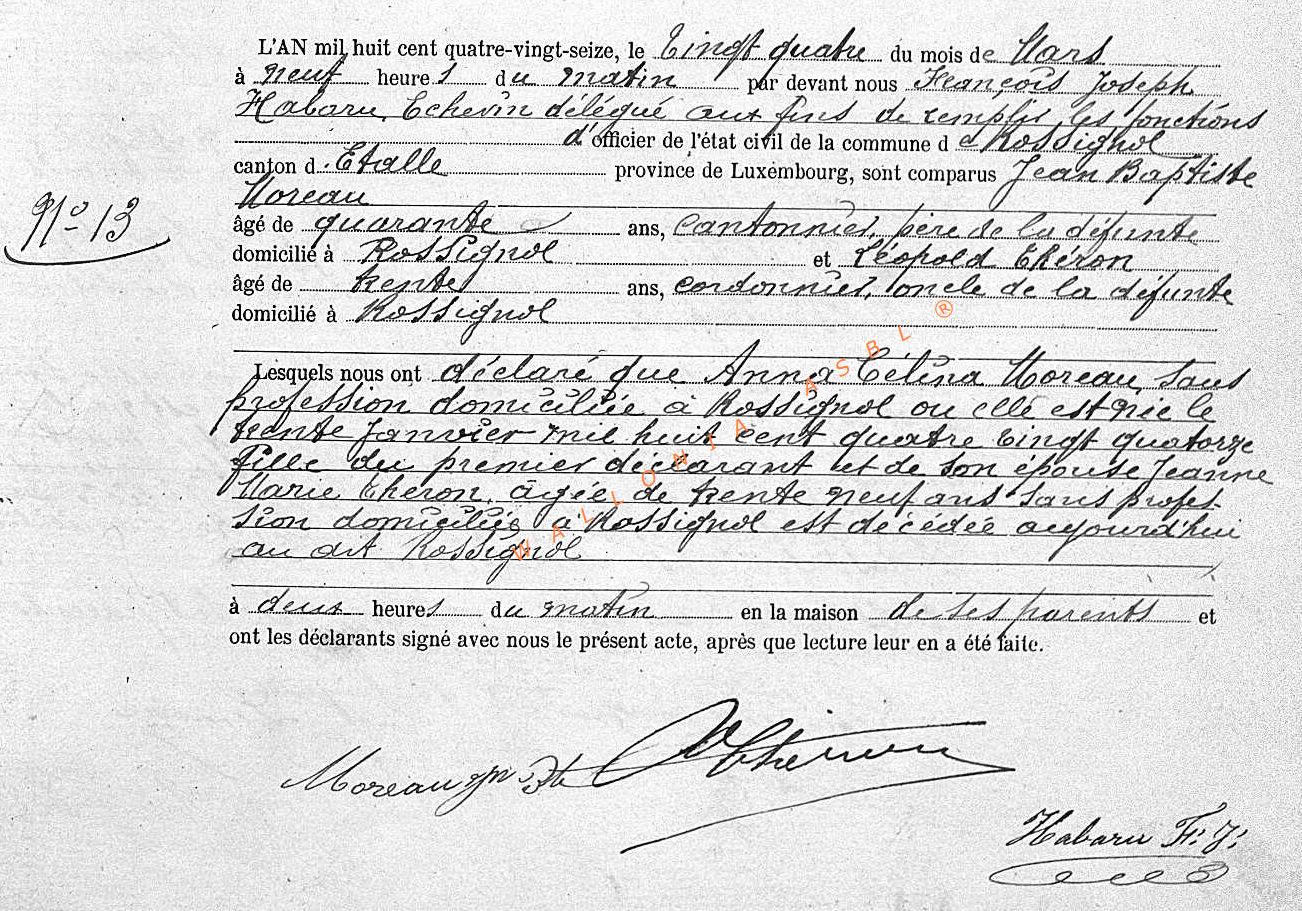 L'AN mil huit cent quatre-vingt-seize, le Vingt quatre du mois de Mars
à neuf heures du matin par devant nous François Joseph
Habaru, Echevin délégué aux fins de remplir les fonctions
d'officier de l'état civil de la commune de Rossignol
canton d'Etalle province de Luxembourg, sont comparus Jean Baptiste
Moreau
N° 13
âgé de quarante ans, cantonnier, père de la défunte
domicilié à Rossignol et Léopold Théron
âgé de trente ans, cordonnier, oncle de la défunte
domicilié à Rossignol
Lesquels nous ont déclaré que Anna Célina Moreau, sans
profession domiciliée à Rossignol ou elle est née le
trente Janvier mil huit cent quatre vingt quatorze
fille du premier déclarant et de son épouse Jeanne
Marie Theron, âgée de trente neuf ans sans profes-
sion domiciliée à Rossignol est décédée aujourd'hui
au dit Rossignol
à deux heures du matin en la maison de ses parents et
ont les déclarants signé avec nous le présent acte, après que lecture leur en a été faite.
Moreau Bte Théron
Habaru F. J.
WALLONIA ASBL ®